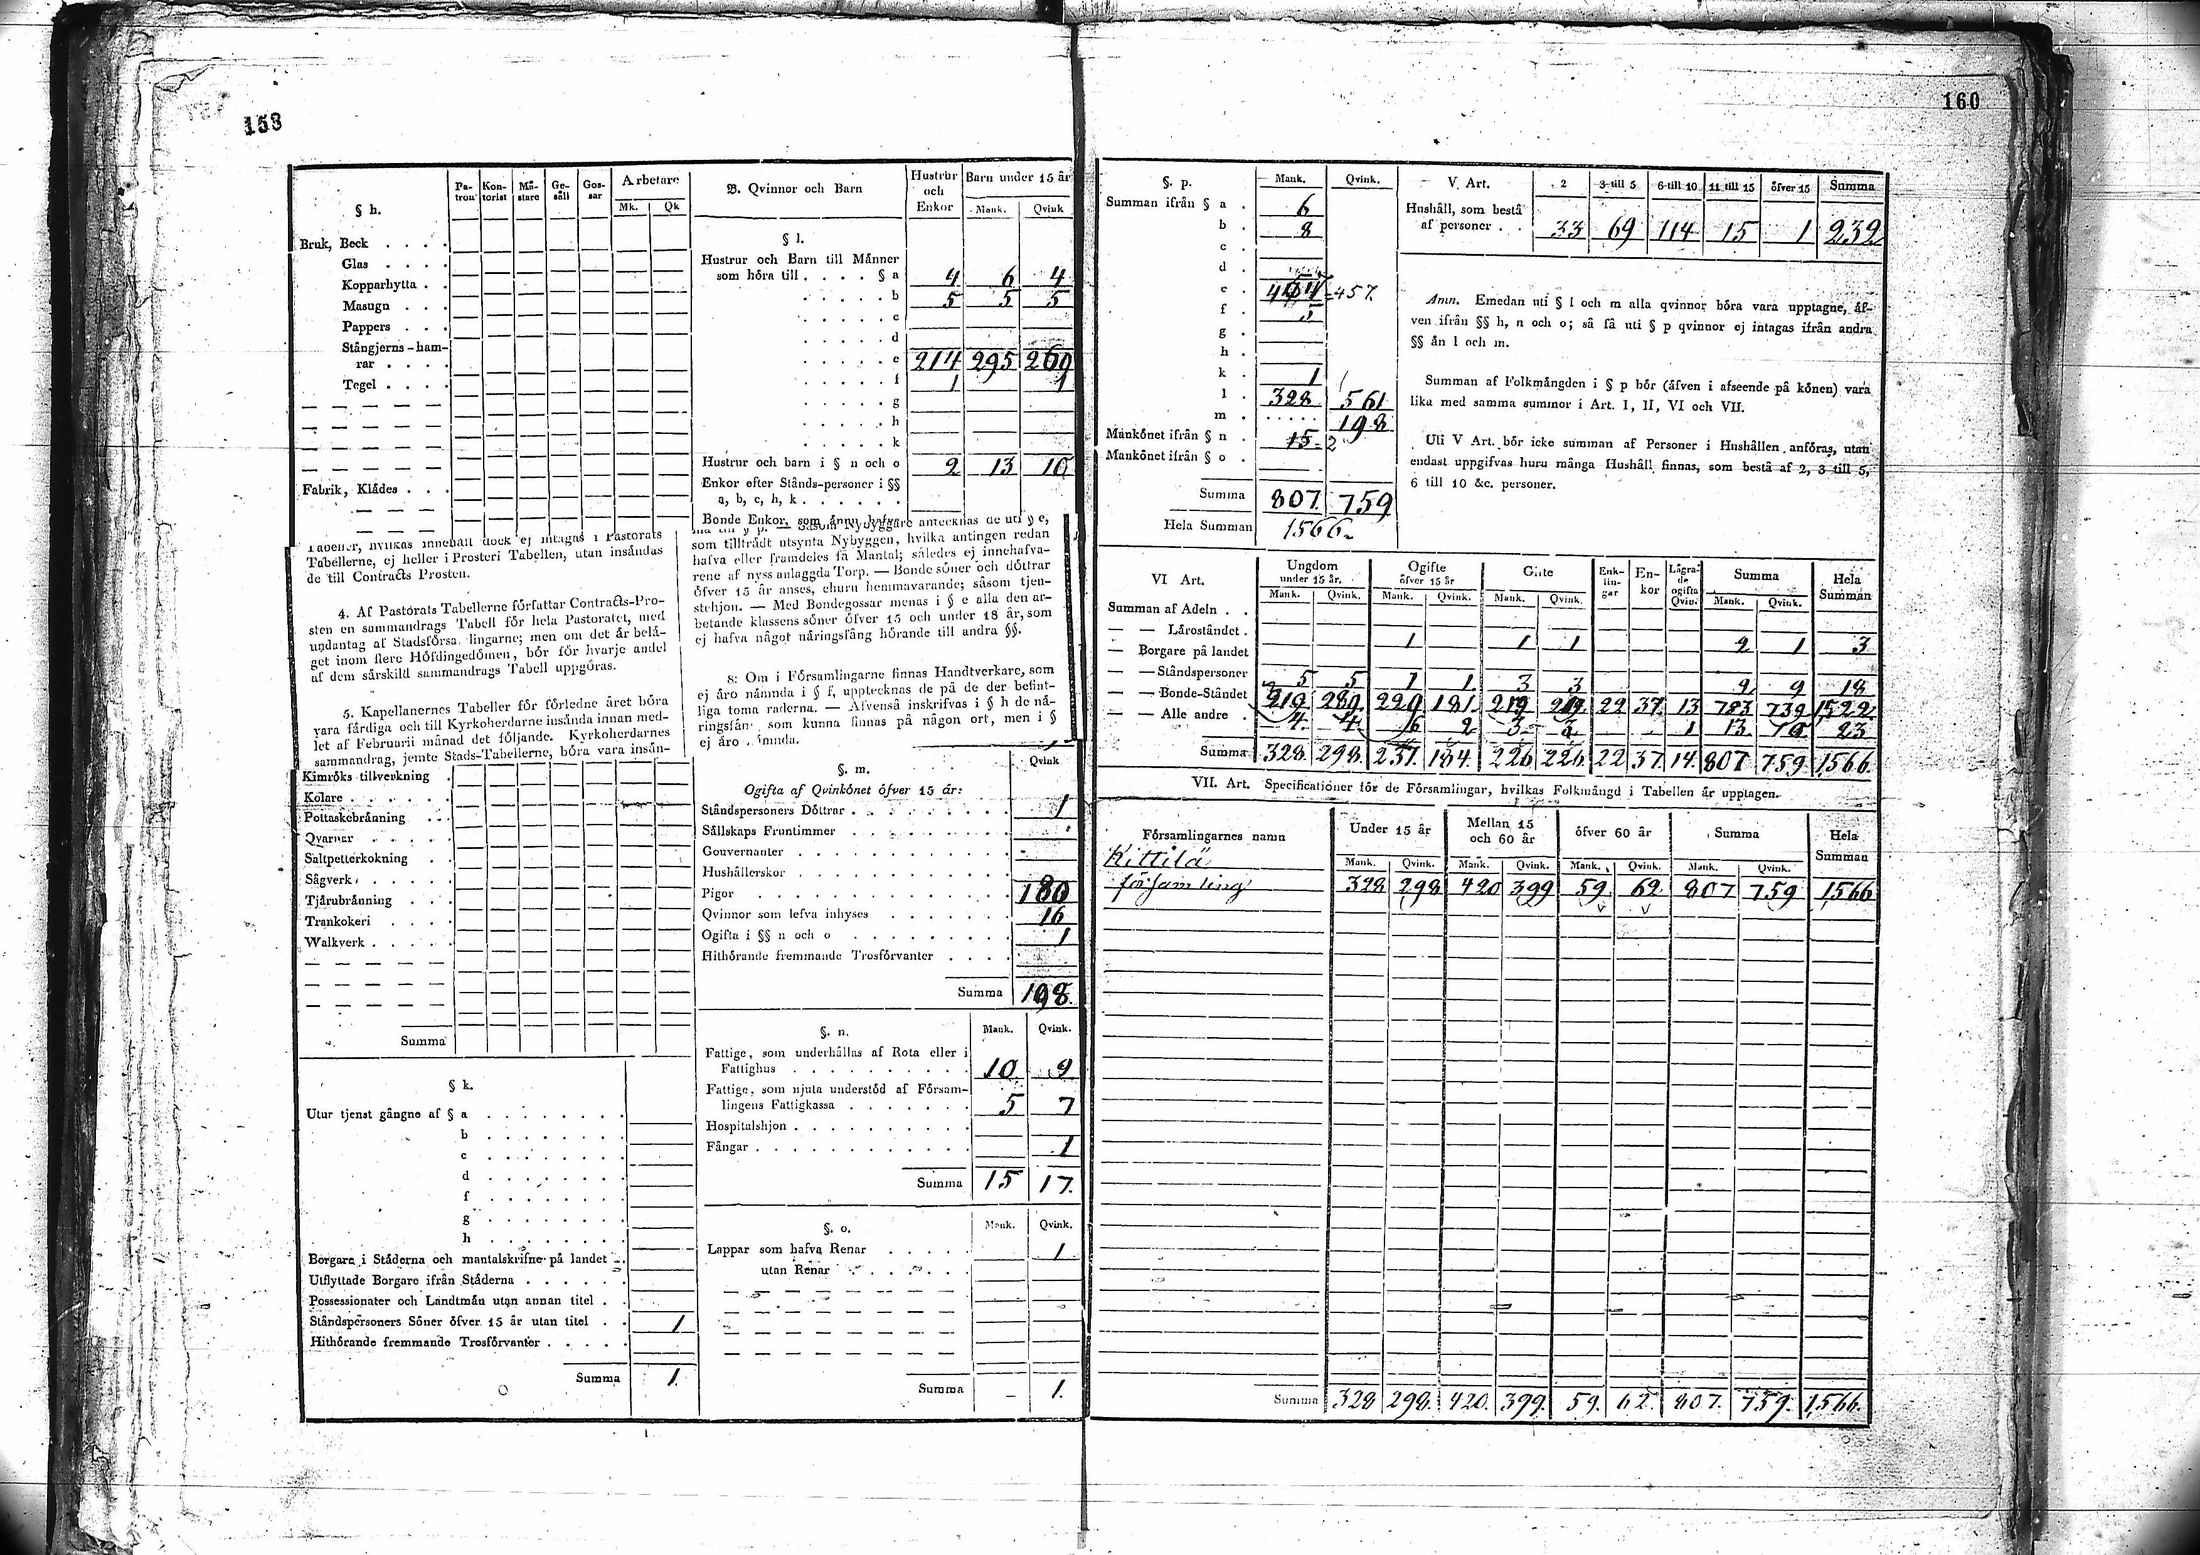 158
160
§ h.
Pa-
tron
Kon-
torist
Mä-
stare
Ge-
säll
Gos-
sar
Arbetare
Mk. Qk
Bruk, Beck . . . .
Glas . . . .
Kopparhytta . .
Masugn . . .
Pappers . . .
Stångjerns-ham-
rar . . . .
Tegel . . . .
Fabrik, Klådes . . .
Tabeller, hvilkas innehåll dock ej intagas i Pastorats
Tabellerne, ej heller i Prosteri Tabellen, utan insåndas
de till Contracts Prosten.
4. Af Pastorats Tabellerne författar Contracts-Pro-
sten en sammandrags Tabell för hela Pastoratet, med
undantag af Stadsförsa lingarne; men om det år belå-
get inom flere Höfdingedömen, bör för hvarje andel
af dem särskild sammandrags Tabell uppgöras.
5. Kapellanernes Tabeller för förledne året böra
vara färdiga och till Kyrkoherdarne insånda innan med-
let af Februarii månad det följande. Kyrkoherdarnes
sammandrag, jemte Stads-Tabellerne, böra vara insån-
Kimröks tillverkning .
Kolare . . . . .
Pottaskebrånning . . .
Qvarnar . . . .
Saltpetterkokning . .
Sågverk . . . . .
Tjårubrånning . . .
Trankokeri . . .
Walkverk . . . . .
Summa
§ k.
Utur tjenst gångne af § a . . . . . . . .
b . . . . . . . .
c . . . . . . . .
d . . . . . . . .
f . . . . . . . .
g . . . . . . . .
h . . . . . . . .
Borgare i Ståderna och mantalskrifne på landet . .
Utflyttade Borgare ifrån Ståderna . . . . . .
Possessionater och Landtmån utan annan titel . .
Ståndspersoners Söner öfver 15 år utan titel . . 1
Hithörande fremmande Trosförvanter . . . . .
Summa 1.
B. Qvinnor och Barn
Hustrur
och
Enkor
Barn under 15 år
Mank. Qvink
§ l.
Hustrur och Barn till Månner
som höra till . . . . § a 4 6 4
. . . . . b 5 5 5
. . . . . c
. . . . . d
. . . . . e 214 295 269
. . . . . f 1 1
. . . . . g
. . . . . h
. . . . . k
Hustrur och barn i § n och o 2 13 10
Enkor efter Stånds-personer i §§
a, b, c, h, k . . . . . .
Bonde Enkor, som ånnu hafva
som tilltrådt utsynta Nybyggen, hvilka antingen redan
hafva eller framdeles få Mantal; således ej innehafva-
rene af nyss anlaggda Torp. — Bonde söner och döttrar
öfver 15 år anses, ehuru hemmavarande; såsom tjen-
stehjon. — Med Bondegossar menas i § e alla den ar-
betande klassens söner öfver 15 och under 18 år, som
ej hafva något näringsfång hörande till andra §§.
8: Om i Församlingarne finnas Handtverkare, som
ej åro nåmnda i § f, upptecknas de på de der befint-
liga toma raderna. — Åfvenså inskrifvas i § h de nå-
ringsfån som kunna finnas på någon ort, men i §
ej åro nåmnda.
§. m.
Qvink
Ogifta af Qvinkönet öfver 15 år:
Ståndspersoners Döttrar . . . . . . . . 1
Sållskaps Fruntimmer . . . . . . . .
Gouvernanter . . . . . . . . . .
Hushållerskor . . . . . . . . . .
Pigor . . . . . . . . . . . . 180
Qvinnor som lefva inhyses . . . . . . 16
Ogifta i §§ n och o . . . . . . . . . 1
Hithörande fremmande Trosförvanter . . . .
Summa 198.
§. n.
Mank. Qvink.
Fattige, som underhållas af Rota eller i
Fattighus . . . . . . . . . 10 9
Fattige, som njuta understöd af Försam-
lingens Fattigkassa . . . . . . . 5 7
Hospitalshjon . . . . . . . . . .
Fångar . . . . . . . . . . . . 1
Summa 15 17.
§. o.
Mank. Qvink.
Lappar som hafva Renar . . . . . 1
utan Renar . . . . . .
Summa - 1.
§. p.
Mank. Qvink.
Summan ifrån § a . 6
b . 8
c .
d .
e . 457.
f .
g .
h .
k . 1
l . 328 561
m . 198
Mankönet ifrån § n . 15
Mankönet ifrån § o .
Summa 807. 759
Hela Summan 1566.
V. Art.
2 3 till 5 6 till 10 11 till 15 öfver 15 Summa
Hushåll, som bestå
af personer . . 33 69 114 15 1 232
Anm. Emedan uti § l och m alla qvinnor böra vara upptagne, åf-
ven ifrån §§ h, n och o; så få uti § p qvinnor ej intagas ifrån andra
§§ ån l och m.
Summan af Folkmångden i § p bör (åfven i afseende på könen) vara
lika med samma summor i Art. I, II, VI och VII.
Uti V Art. bör icke summan af Personer i Hushållen anföras, utan
endast uppgifvas huru många Hushåll finnas, som bestå af 2, 3 till 5,
6 till 10 &c. personer.
VI Art.
Ungdom
under 15 år.
Ogifte
öfver 15 år
Gifte
Enk-
lin-
gar
En-
kor
Lågra-
de
ogifta
Qvin.
Summa
Hela
Summan
Mank. Qvink. Mank. Qvink. Mank. Qvink. Mank. Qvink.
Summan af Adeln . .
— — Låroståndet . 1 1 1 2 1 3
— Borgare på landet
— — Ståndspersoner 5 5 1 1 3 3 9 9 18
— — Bonde-Ståndet 319 289 229 181 219 219 22 37 13 783 739 1522
— — Alle andre . 4 4 6 2 3 3 1 13 10 23
Summa 328. 298. 237. 184. 226 226 22 37. 14. 807 759. 1566.
VII. Art. Specificationer för de Församlingar, hvilkas Folkmångd i Tabellen år upptagen.
Församlingarnes namn
Under 15 år
Mellan 15
och 60 år
öfver 60 år
Summa
Hela
Summan
Mank. Qvink. Mank. Qvink. Mank. Qvink. Mank. Qvink.
Kittilä
församling 328 298 420 399 59. 62. 807 759 1566
Summa 328 298. 420. 399. 59. 62. 807. 759. 1566.